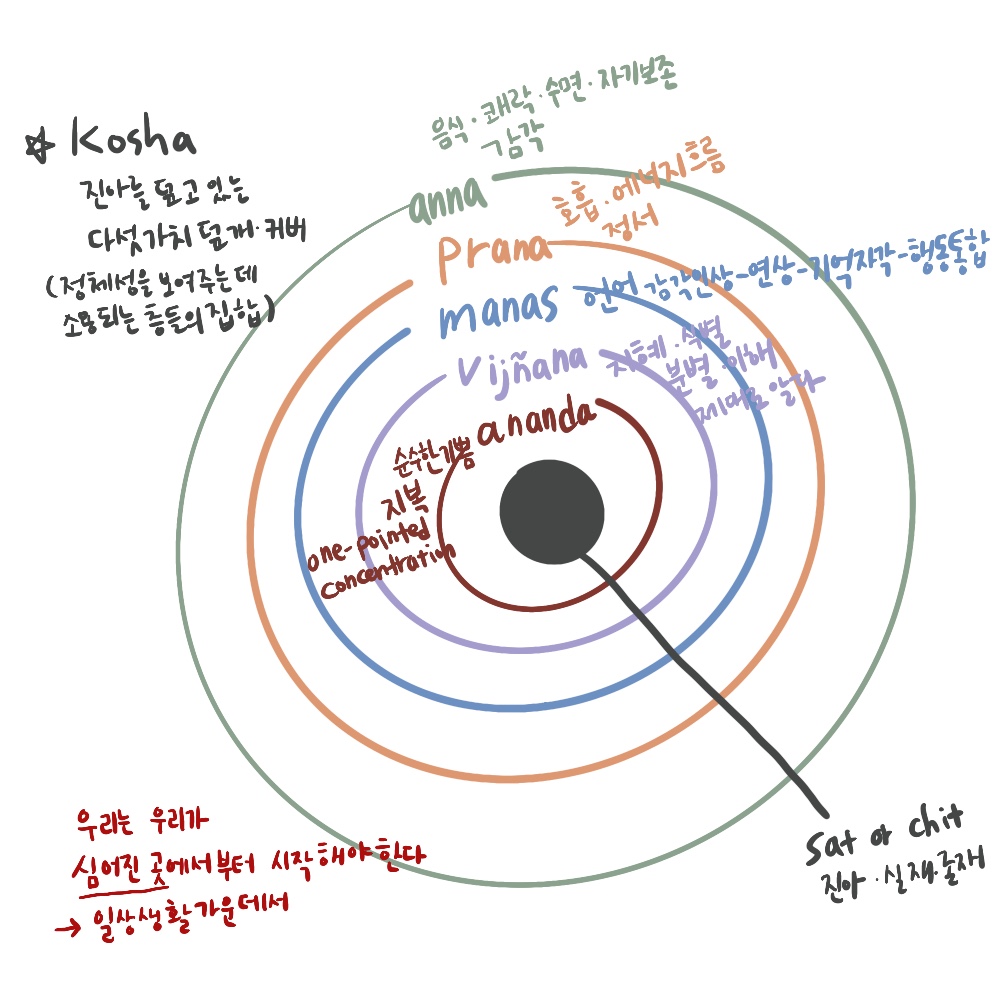 ☆ Kosha
진아를 덮고 있는
다섯가지 덮개·커버
(정체성을 보여주는데
소용되는 층들의 집합)
음식·쾌락·수면·자기보존
감각
anna
호흡·에너지흐름
정서
Prana
manas
언어 감각인상-연상-기억자각-행동통합
Vijñana
지혜·식별
분별·이해
제대로 알다
ananda
순수한기쁨
지복
one-pointed
concentration
Sat or chit
진아·실재·존재
우리는 우리가
심어진 곳에서부터 시작해야한다
→ 일상생활가운데서